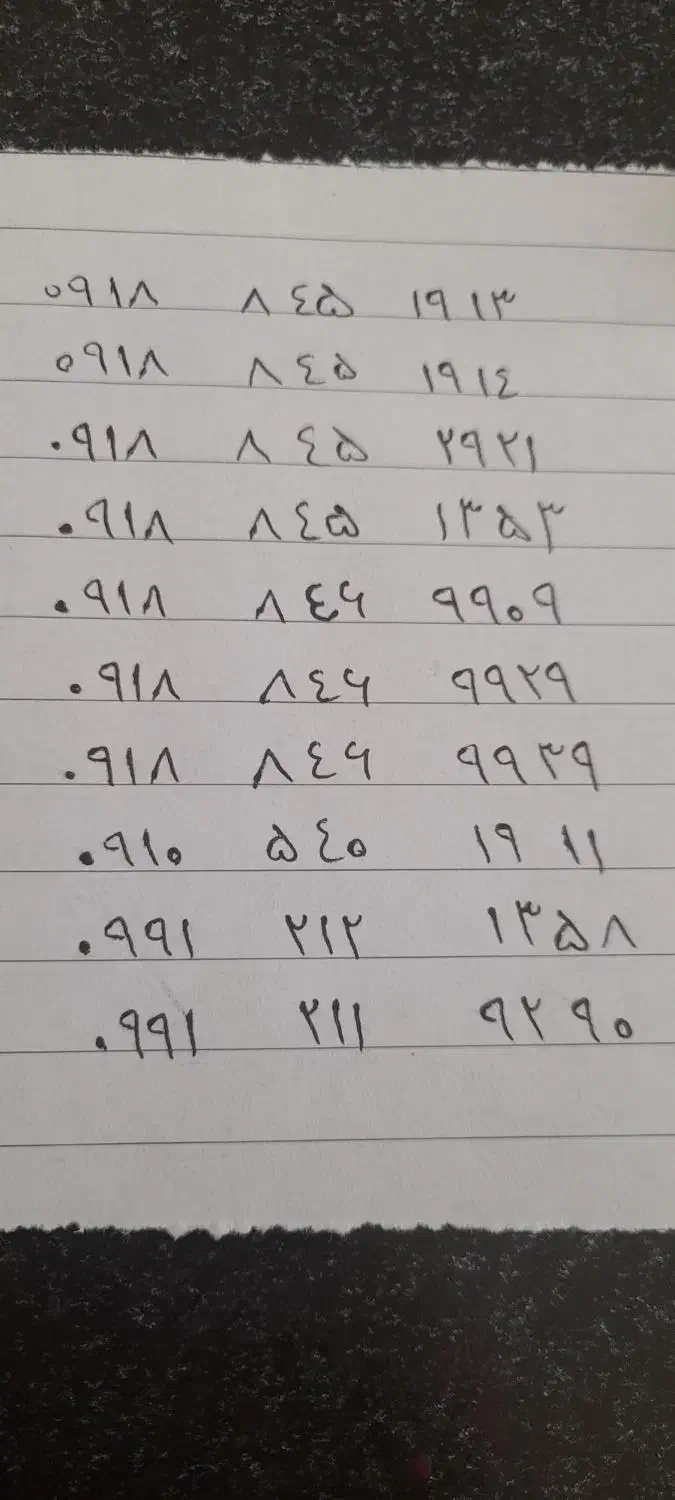 ۰۹۱۸ ۸۴۵ ۱۹۱۳
۰۹۱۸ ۸۴۵ ۱۹۱۴
۰۹۱۸ ۸۴۵ ۲۹۲۱
۰۹۱۸ ۸۴۵ ۱۳۵۳
۰۹۱۸ ۸۴۶ ۹۹۰۹
۰۹۱۸ ۸۴۶ ۹۹۲۹
۰۹۱۸ ۸۴۶ ۹۹۳۹
۰۹۱۰ ۵۴۰ ۱۹۱۱
۰۹۹۱ ۲۱۲ ۱۳۵۸
۰۹۹۱ ۲۱۱ ۹۲۹۰